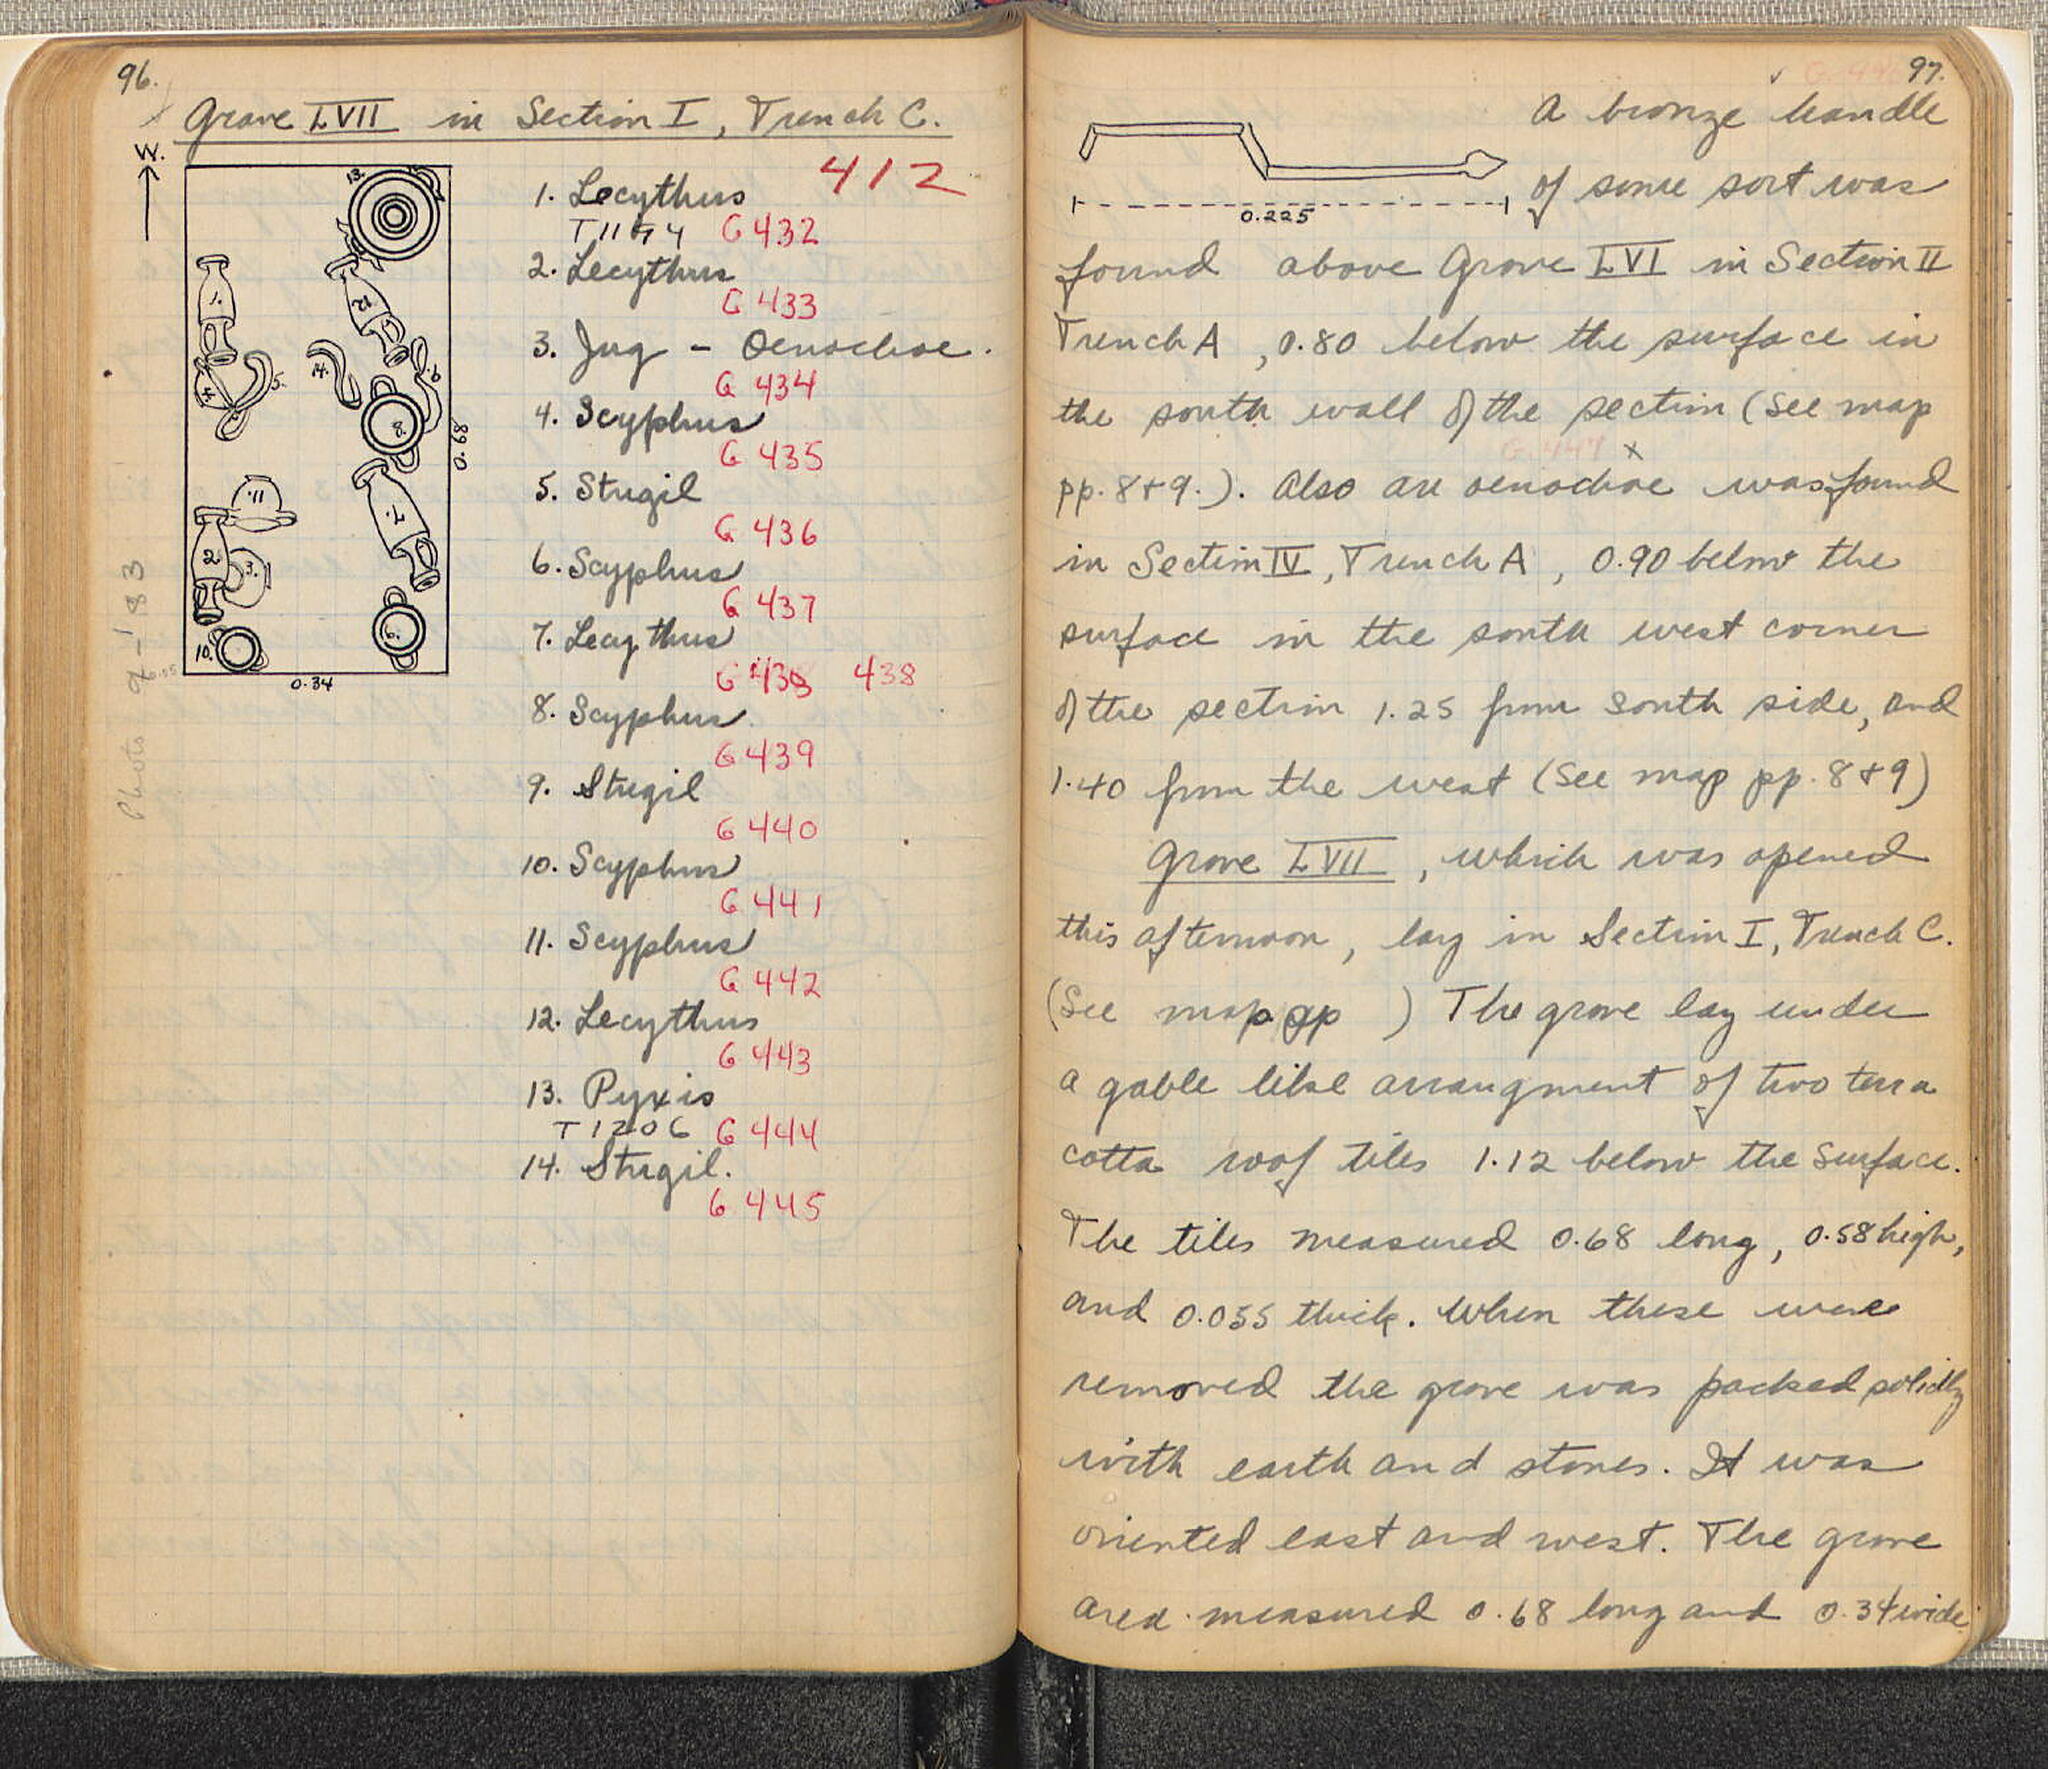 96.
Grave LVII in Section I, Trench C.
W.
412
13.
1.
12.
14.
5.
4.
9.
8.
11.
7.
2.
3.
10.
6.
0.68
0.34
Photo 9-183
1. Lecythus
G 432
2. Lecythus
G 433
3. Jug - Oenochoe.
G 434
4. Scyphus
G 435
5. Strigil
G 436
6. Scyphus
G 437
7. Lecythus
G 438 438
8. Scyphus.
G 439
9. Strigil
G 440
10. Scyphus
G 441
11. Scyphus
G 442
12. Lecythus
G 443
13. Pyxis
T 1206 G 444
14. Strigil.
G 445
97.
A bronze handle
of some sort was
0.225
found above Grave LVI in Section II
Trench A, 0.80 below the surface in
the south wall of the section (See map
G 447 x
pp. 8+9.). Also an oenochoe was found
in Section IV, Trench A, 0.90 below the
surface in the south west corner
of the section 1.25 from south side, and
1.40 from the west (See map pp. 8+9)
Grave LVII, which was opened
this afternoon, lay in Section I, Trench C.
(See map pp ) The grave lay under
a gable like arrangment of two terra
cotta roof tiles 1.12 below the surface.
The tiles measured 0.68 long, 0.58 high,
and 0.055 thick. When these were
removed the grave was packed solidly
with earth and stones. It was
oriented east and west. The grave
area measured 0.68 long and 0.34 wide